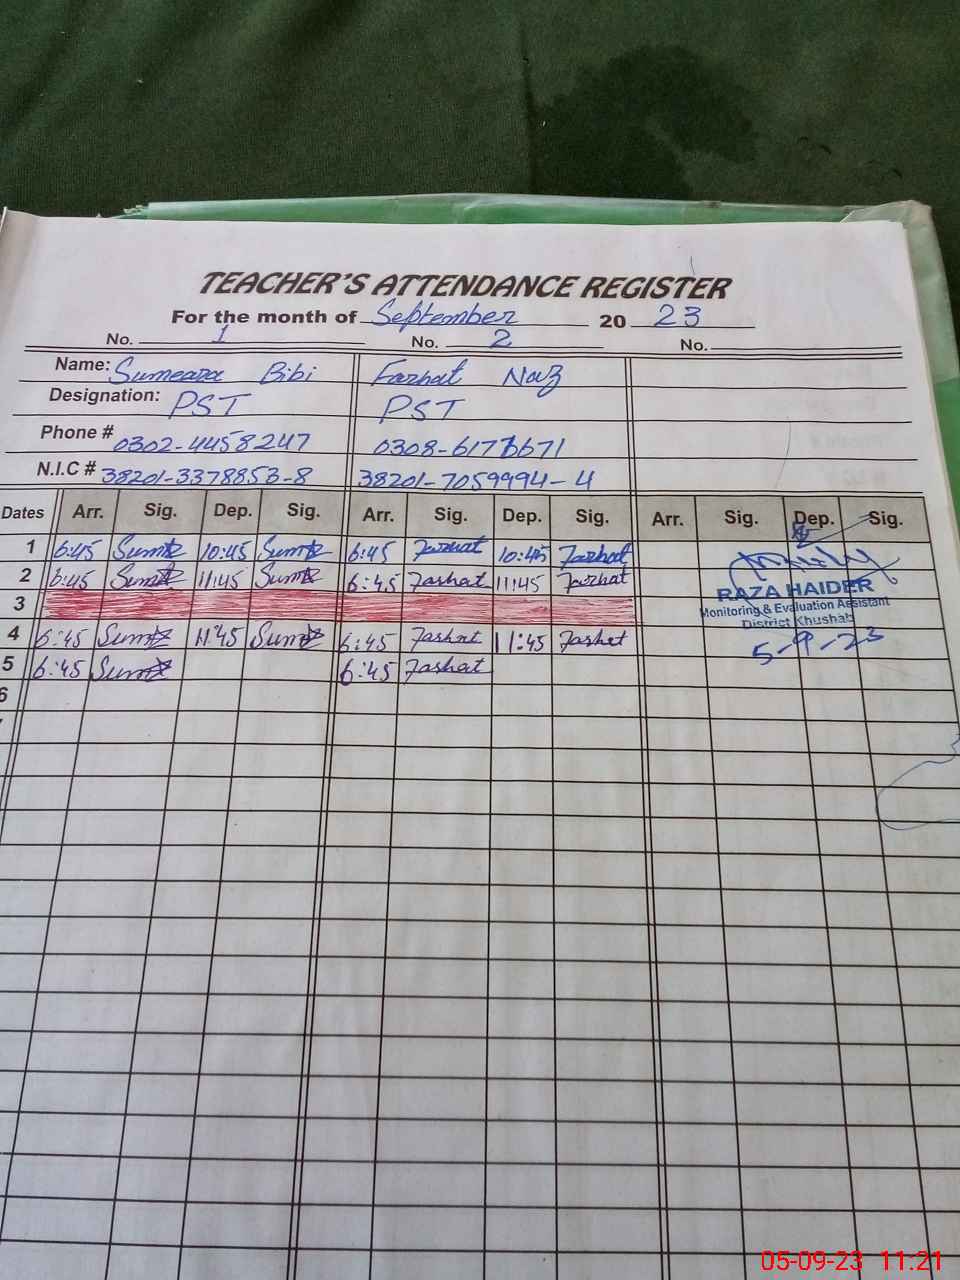 TEACHER'S ATTENDANCE REGISTER
For the month of September 20 23
No. 1 No. 2 No.
Name: Sumeara Bibi Farhat Naz
Designation: PST PST
Phone # 0302-4458247 0308-6177671
N.I.C # 38201-3378853-8 38201-7059994-4
Dates Arr. Sig. Dep. Sig. Arr. Sig. Dep. Sig. Arr. Sig. Dep. Sig.
1 6:45 Sum 10:45 Sum 6:45 Farhat 10:45 Farhat
2 6:45 Sum 11:45 Sum 6:45 Farhat 11:45 Farhat
RAZA HAIDER
3
Monitoring & Evaluation Assistant
District Khushab
4 6:45 Sum 11:45 Sum 6:45 Farhat 11:45 Farhat
5-9-23
5 6:45 Sum 6:45 Farhat
6
05-09-23 11:21